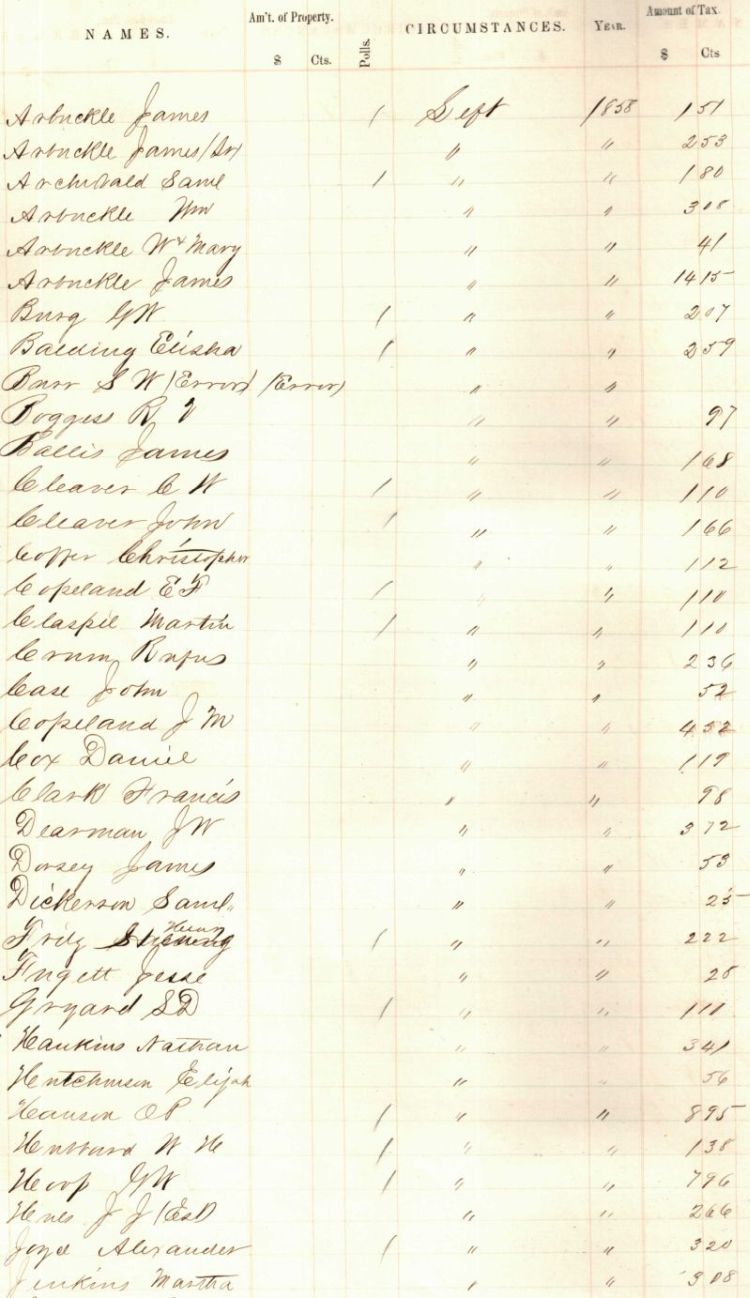 NAMES. Am't. of Property. $ Cts. Polls. CIRCUMSTANCES. YEAR. Amount of Tax. $ Cts
Arbuckle James / Left 1858 1 51
Arbuckle James (Sr) " " 2 53
Archibald Saml / " " 1 80
Arbuckle Wm " " 3 08
Arbuckle W & Mary " " 41
Arbuckle James " " 14 15
Burg G W / " " 2 07
Balding Elisha / " " 2 59
Burr S W (Error) (Error) " "
Boggess R V " " 97
Ballis James " " 1 68
Cleaver C W / " " 1 10
Cleaver John / " " 1 66
Coffer Christopher " " 1 12
Copeland E F / " " 1 10
Claspil Martin / " " 1 10
Crum Rufus " " 2 36
Case John " " 52
Copeland J M " " 4 52
Cox Daniel " " 1 19
Clark Francis " " 98
Dearman J W " " 3 72
Dorsey James " " 53
Dickerson Saml " " 25
Henry / " " 2 22
Fugett Jesse " " 28
Gryard S D / " " 1 11
Hankins Nathan " " 3 41
Hutchinson Elijah " " 56
Hanson O P / " " 8 95
Hubbard W H / " " 1 38
Hoop G W / " " 7 96
J J " " 2 66
Joyd Alexander / " " 3 20
Jenkins Martha " " 3 08